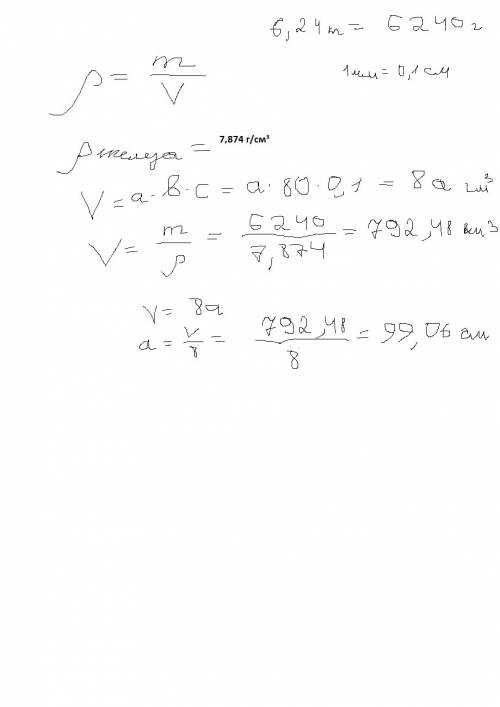 6,24т = 6240г
1мм = 0,1 см
ρ = m/V
ρ железа = 7,874 г/см³
V = a·b·c = a·80·0,1 = 8a см³
V = m/ρ = 6240/7,874 = 792,48 см3
V = 8a
a = V/8 = 792,48/8 = 99,06 см